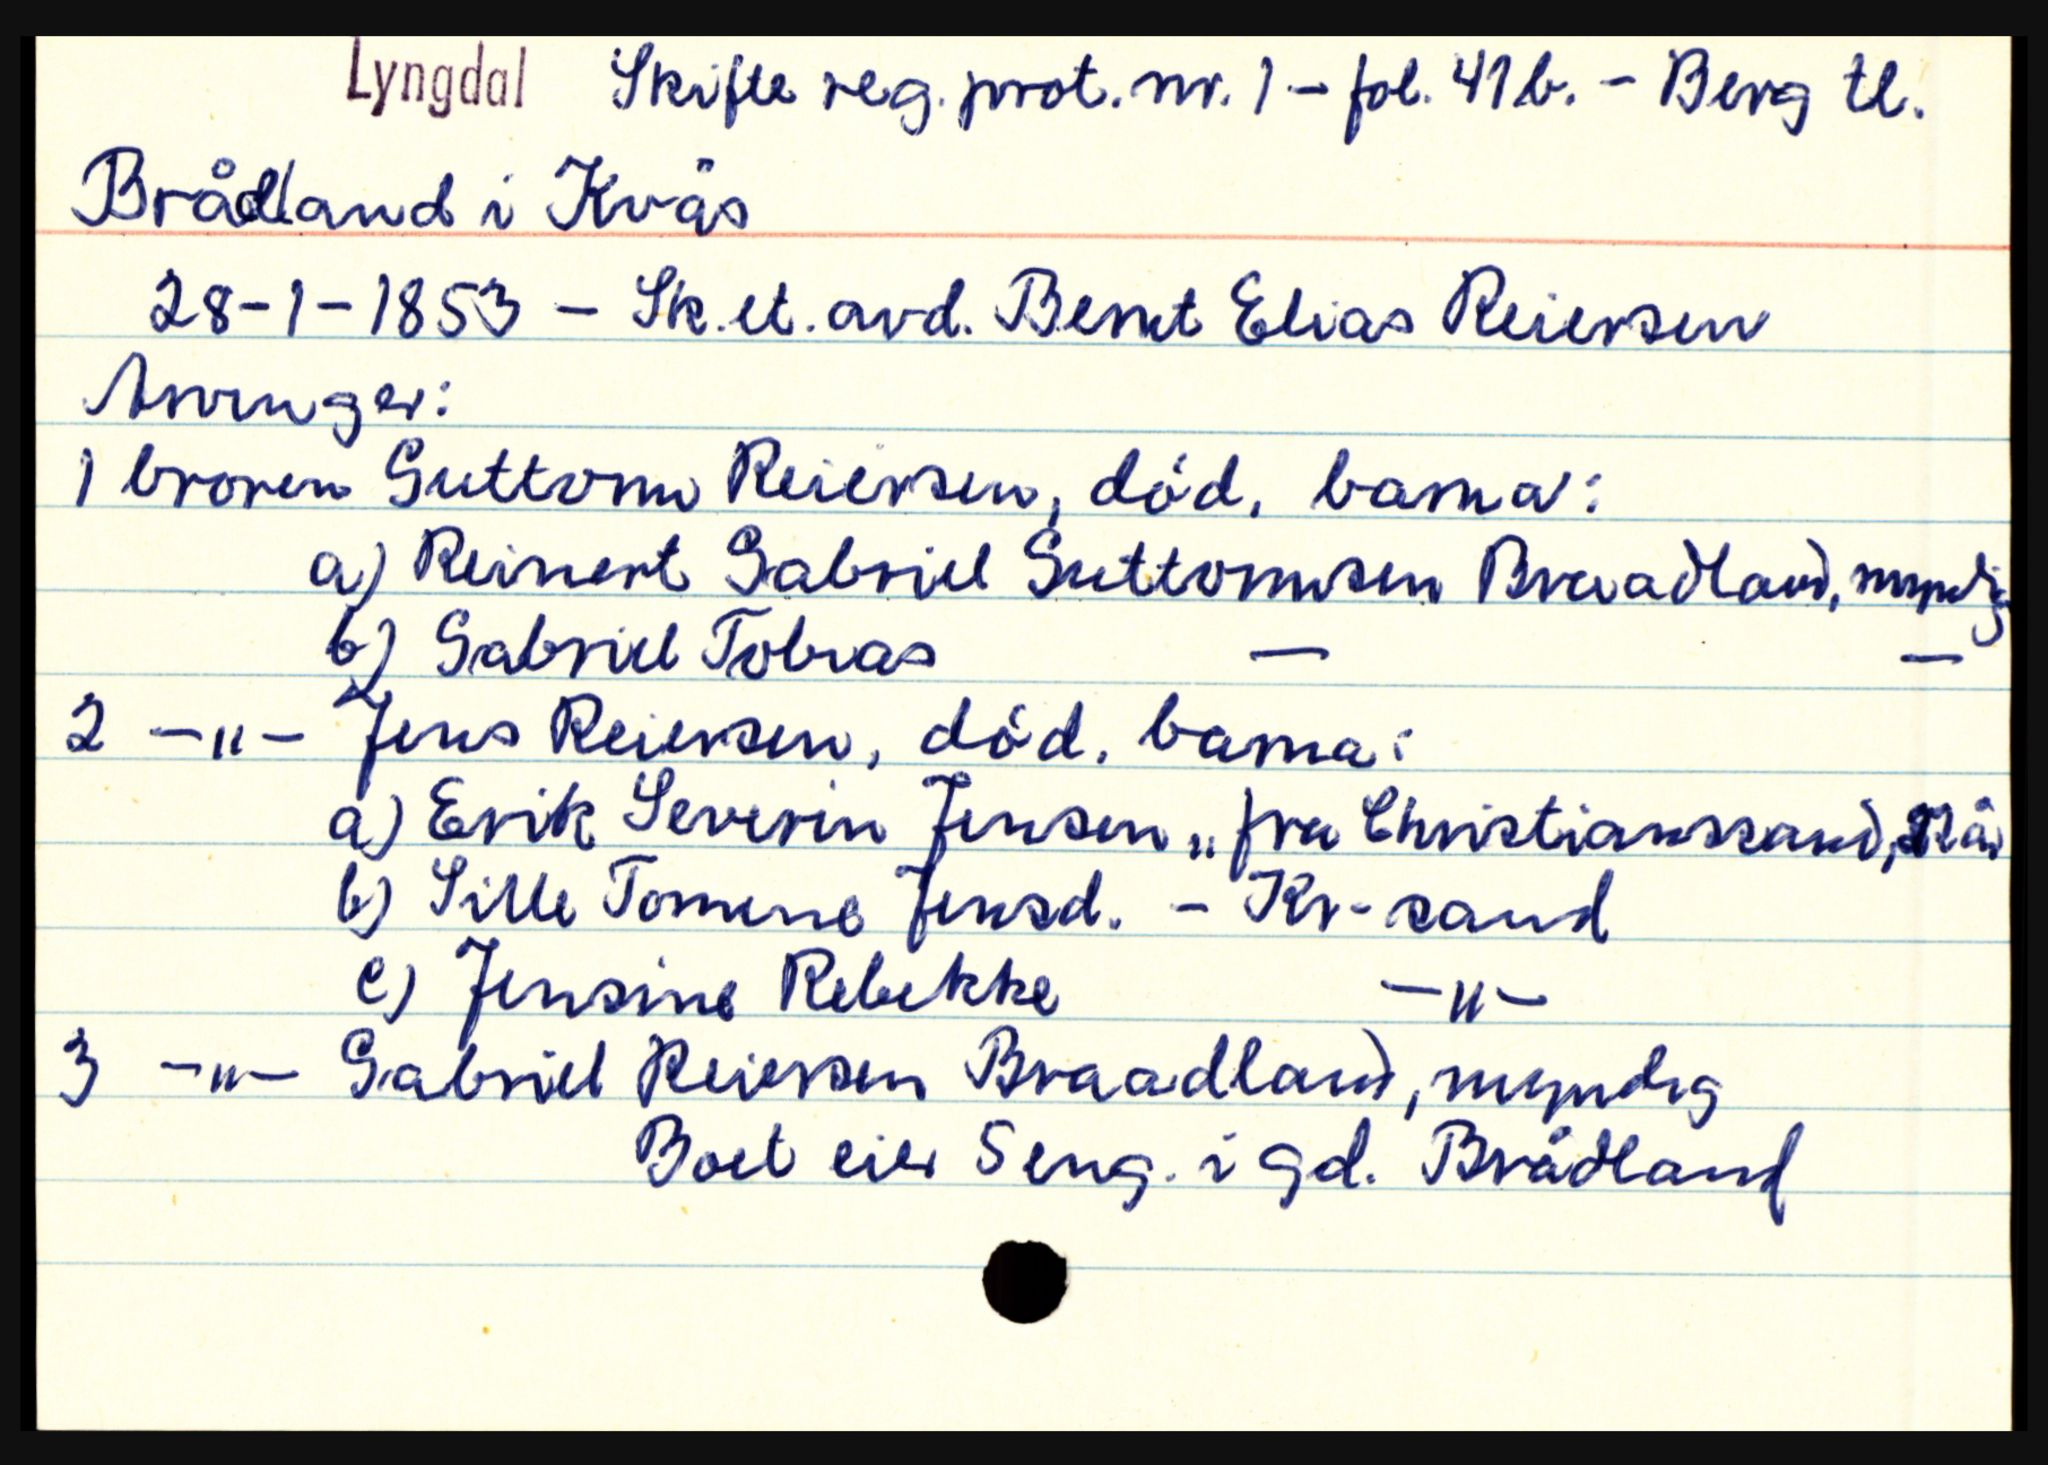 Lyngdal Skifte reg. prot. nr. 1 - fol. 41b. - Berg tl.
Brådland i Kvås
28-1-1853 - Sk. et. avd. Bernt Elias Reiersen
Arvinger:
1 broren Guttorm Reiersen, død, barna:
a) Reinert Gabriel Guttormsen Braadland, myndig
b) Gabriel Tobias — —
2 -"- Jens Reiersen, død, barna:
a) Erik Severin Jensen, fra Christianssand, år
b) Sille Tomine Jensd. - Kr-sand
c) Jensine Rebekke -"-
3 -"- Gabriel Reiersen Braadland, myndig
Boet eier 5 eng. i gd. Brådland